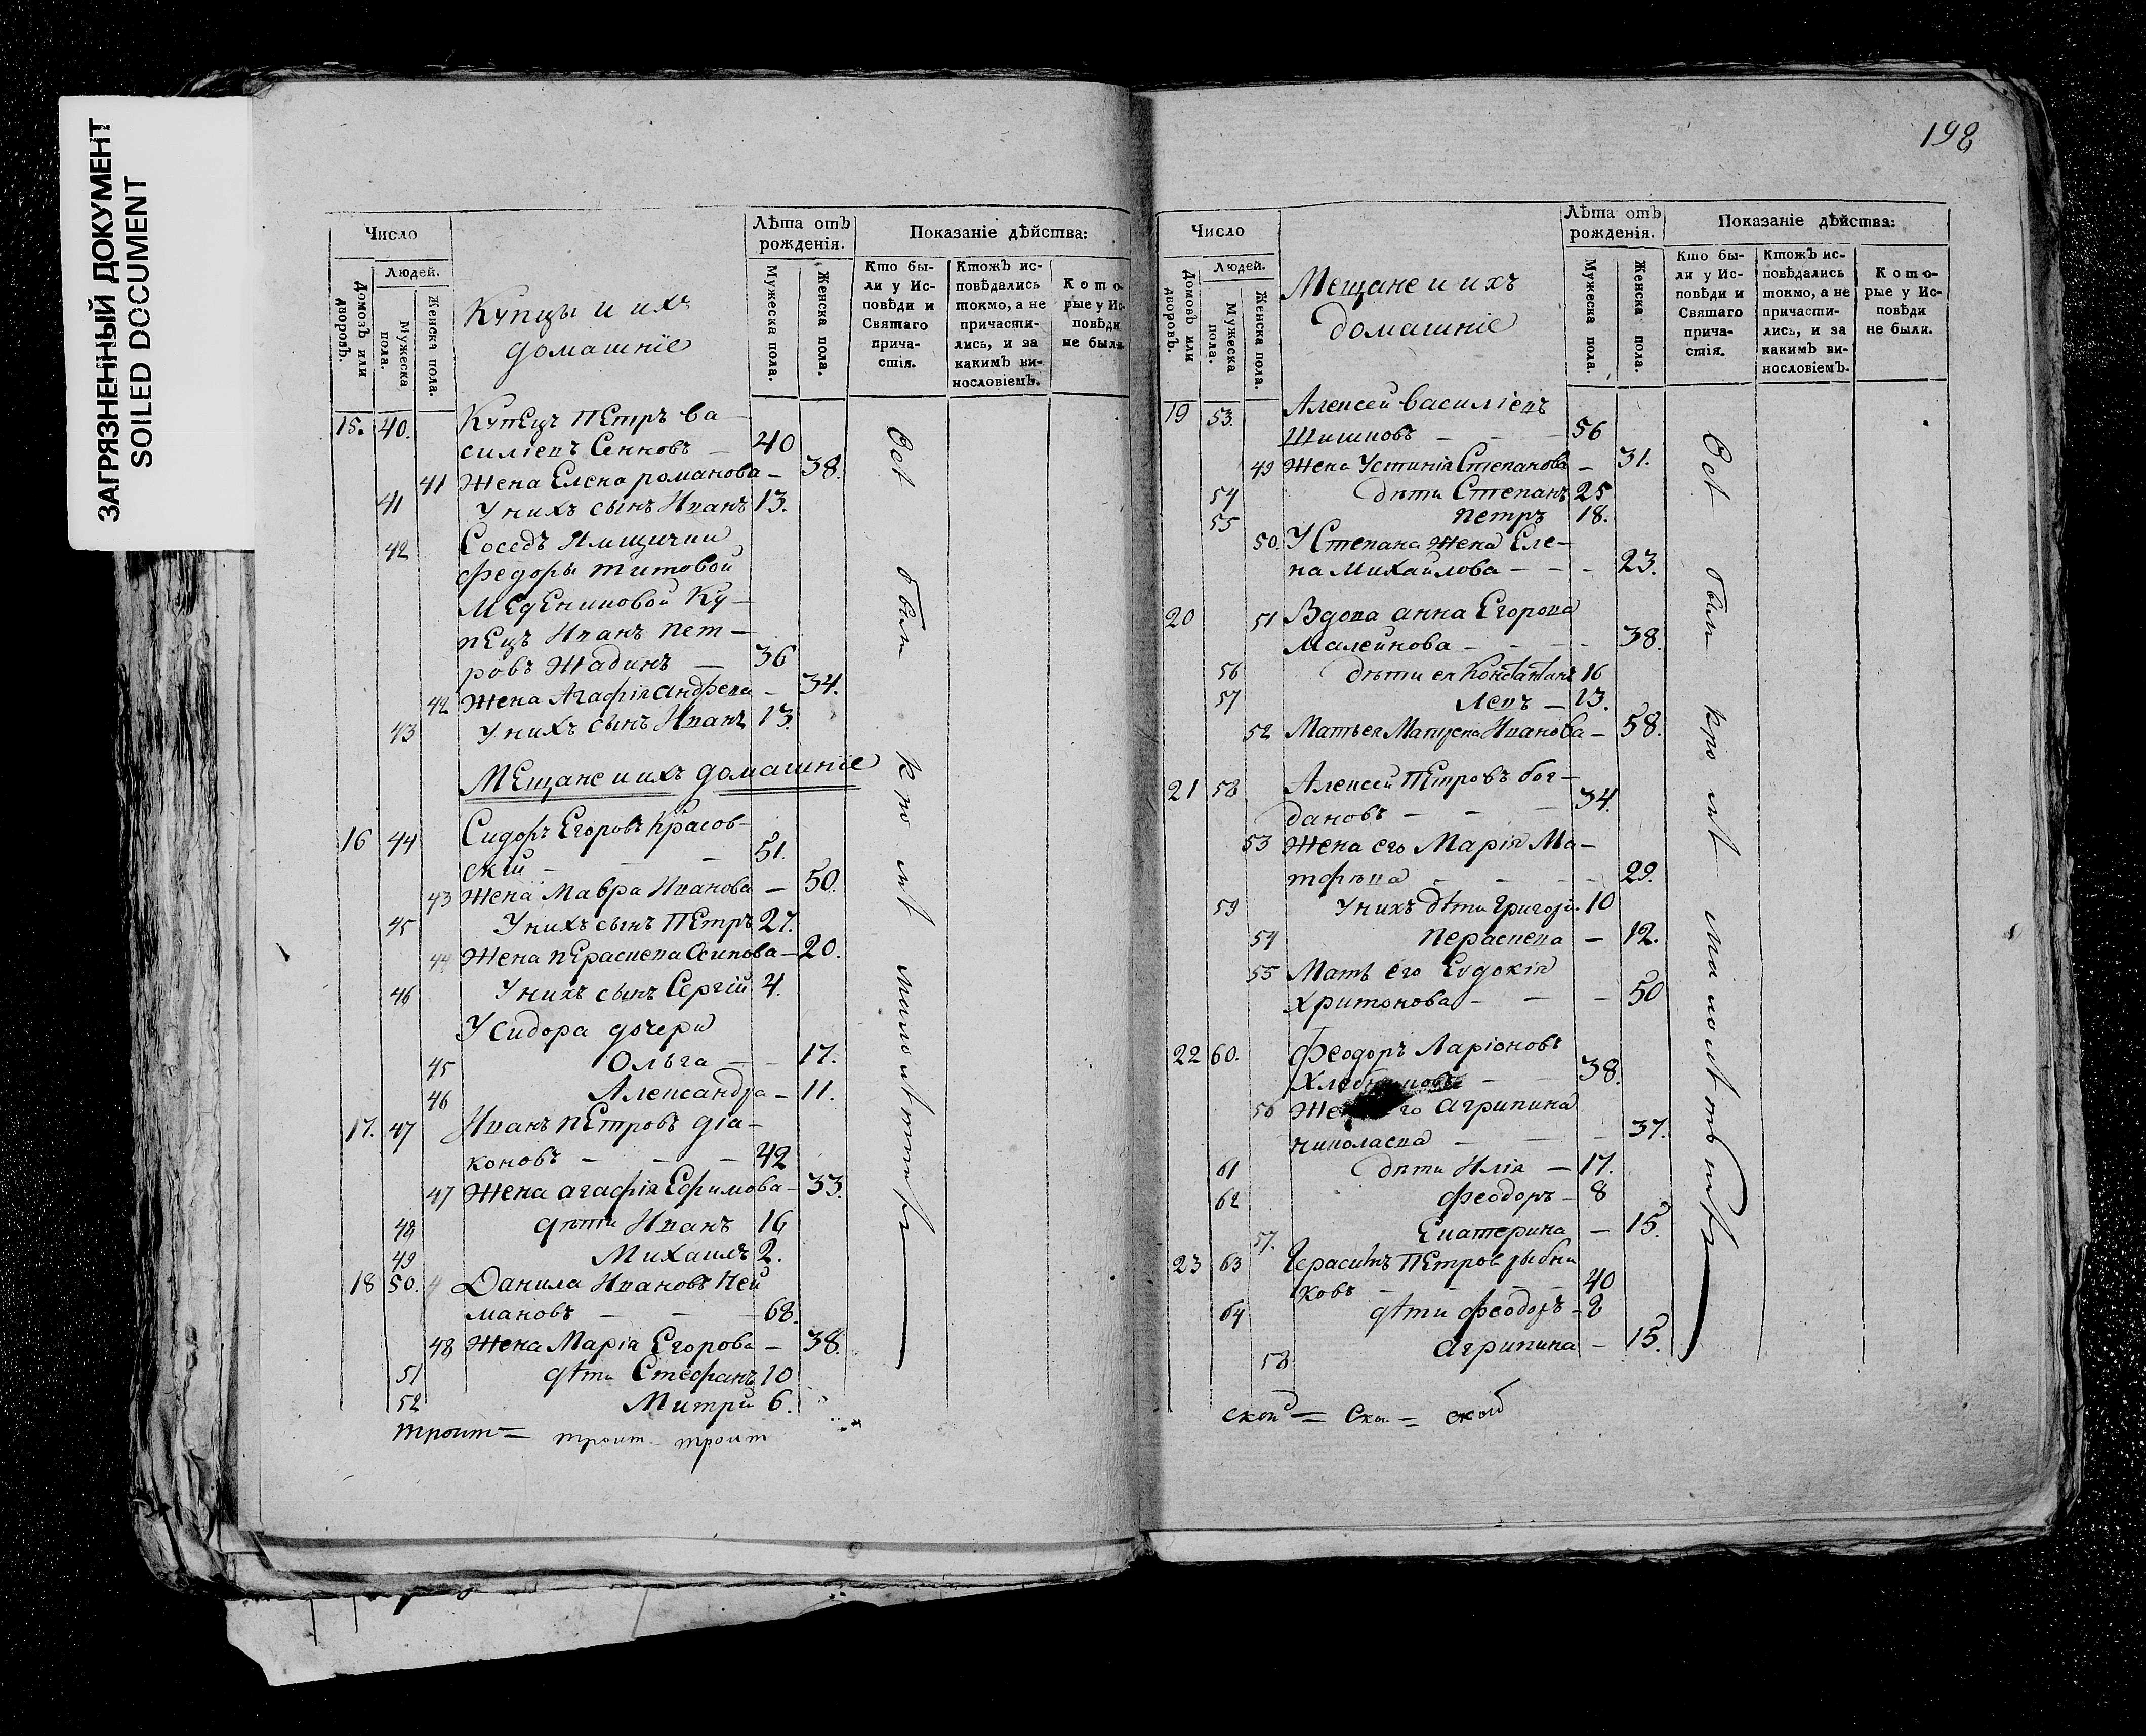 ЗАГРЯЗНЕННЫЙ ДОКУМЕНТ
SOILED DOCUMENT
Число
Людей.
Домовъ или дворовъ.
Мужеска пола.
Женска пола.
Купцы и ихъ
домашніе
Лѣта отъ
рожденія.
Мужеска пола.
Женска пола.
Показаніе дѣйства:
Кто бы-
ли у Ис-
повѣди и
Святаго
прича-
стія.
Ктожъ ис-
повѣдались
токмо, а не
причасти-
лись, и за
какимъ ви-
нословіемъ.
Кото-
рые у Ис-
повѣди
не были.
15. 40. Купецъ Петръ Ва
силіевъ Сенновъ — 40
41 Жена Елена романова — 38.
41 У нихъ сынъ Иванъ 13.
42 Соседъ Ямщички
Федоры титовой
Ку—
пецъ Иванъ Пет—
ровъ Жадинъ — 36
42 Жена Агафія андреева — 34.
43 У нихъ сынъ Иванъ 13.
Мещане и ихъ домашніе
16 44 Сидоръ Егоровъ Красов-
скій — — 51.
43 Жена Мавра Иванова — 50.
45 У нихъ сынъ Петръ 27.
44 Жена перасковa Осипова — 20.
46 У нихъ сынъ Сергій 4.
У Сидора дочери
45 Ольга — — 17.
46 Александра — 11.
17. 47 Иванъ петровъ діа-
коновъ — — — 42
47 Жена агафія Ефимова — 33.
48 дѣти Иванъ 16
49 Михаилъ 2.
18 50. Данила Ивановъ Ней
мановъ — — 68.
48 Жена Марія Егорова — 38.
51 дѣти Стефанъ 10
52 Митрій 6.
троит = троит троит
198
Число
Людей.
Домовъ или дворовъ.
Мужеска пола.
Женска пола.
Мещане и ихъ
домашніе
Лѣта отъ
рожденія.
Мужеска пола.
Женска пола.
Показаніе дѣйства:
Кто бы-
ли у Ис-
повѣди и
Святаго
прича-
стія.
Ктожъ ис-
повѣдались
токмо, а не
причасти-
лись, и за
какимъ ви-
нословіемъ.
Кото-
рые у Ис-
повѣди
не были.
19 53. Алексей василіевъ
Шишковъ — — 56
49 Жена Устинія Степанова — 31.
54 дѣти Степанъ 25
55 петръ 18.
50. У Степана жена Еле—
на Михайлова — — — 23.
20 51 Вдова анна Егорова
Малеинова — — — 38.
56 дѣти ея Константинъ 16
57 Левъ — 13.
52 Мать ея Иванова — 58.
21 58 Алексей Петровъ бог—
дановъ — — — 34.
53 Жена его Марія Ма—
тфѣева — — — 29.
59 У нихъ дѣти григорій 10
54 пераскева — 12.
55 Мать его Евдокія
Хритонова — — — 50
22 60. Феодоръ Ларіоновъ
— — 38.
56 Жена его агрипина
николаева — — — 37.
61 дѣти Илія — 17.
62 феодоръ — 8
57. Екатерина — 15.
23 63 Герасимъ Петров рыбни
ковъ — — — 40
64 дѣти феодоръ — 2
58 агрипина — 15.